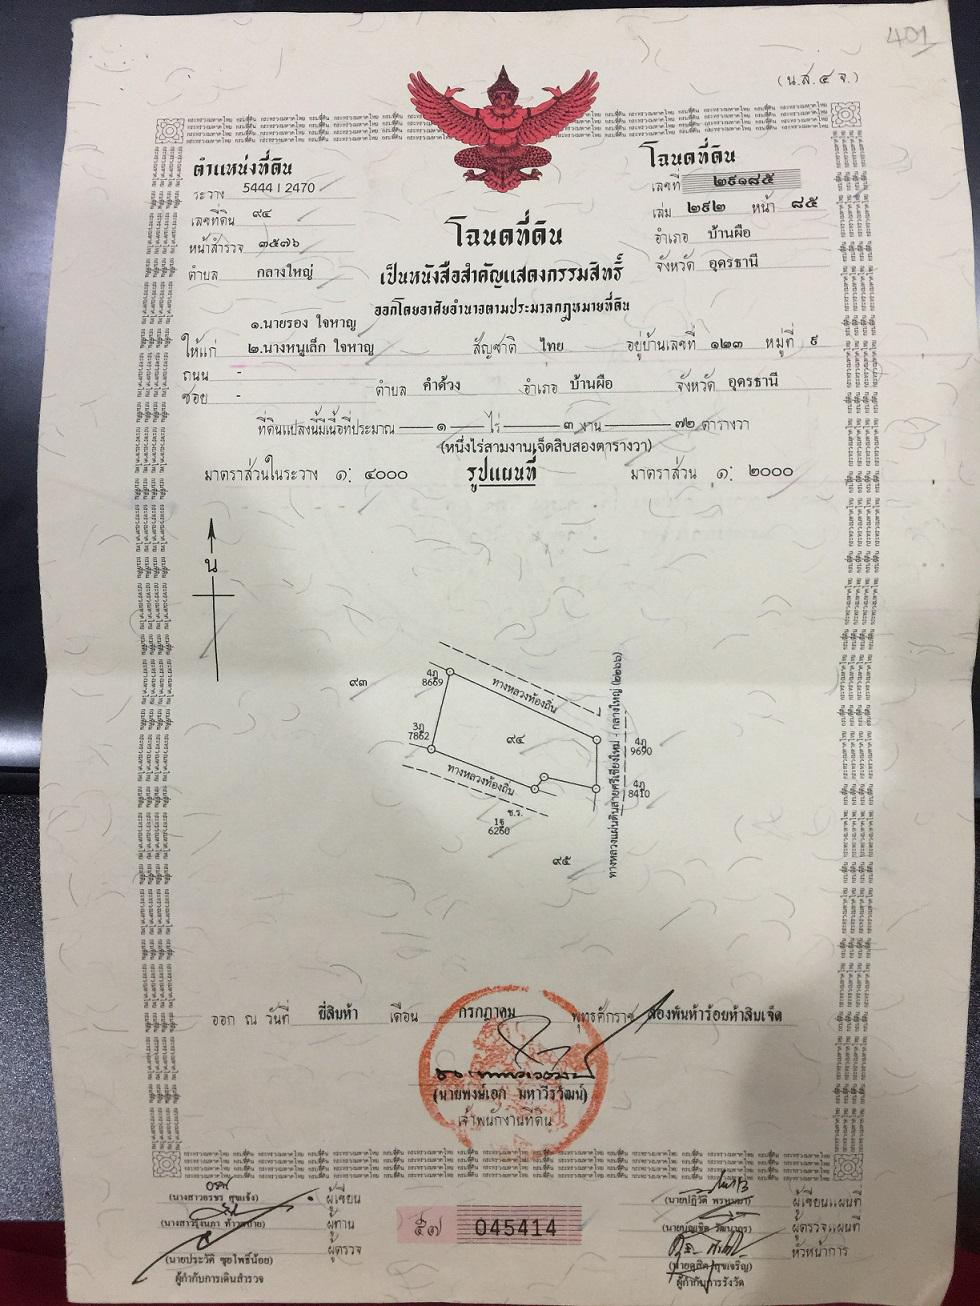 401
(น.ส.๔ จ.)
ตำแหน่งที่ดิน
ระวาง 5444 I 2470
เลขที่ดิน ๙๔
หน้าสำรวจ ๓๕๗๖
ตำบล กลางใหญ่
โฉนดที่ดิน
เลขที่ ๒๙๑๘๕
เล่ม ๒๙๒ หน้า ๘๕
อำเภอ บ้านผือ
จังหวัด อุดรธานี
โฉนดที่ดิน
เป็นหนังสือสำคัญแสดงกรรมสิทธิ์
ออกโดยอาศัยอำนาจตามประมวลกฎหมายที่ดิน
๑.นายรอง ใจหาญ
ให้แก่ ๒.นางหนูเล็ก ใจหาญ สัญชาติ ไทย อยู่บ้านเลขที่ ๑๒๓ หมู่ที่ ๙
ถนน -
ซอย - ตำบล คำด้วง อำเภอ บ้านผือ จังหวัด อุดรธานี
ที่ดินแปลงนี้มีเนื้อที่ประมาณ ๑ ไร่ ๓ งาน ๗๒ ตารางวา
(หนึ่งไร่สามงานเจ็ดสิบสองตารางวา)
มาตราส่วนในระวาง ๑: ๔๐๐๐ รูปแผนที่ มาตราส่วน ๑: ๒๐๐๐
น
๙๓
4ฦ
8669
ทางหลวงท้องถิ่น
3ฦ
7862
๙๔
4ฦ
9690
ทางหลวงท้องถิ่น
4ฦ
8410
ช.ร.
6260
ทางหลวงแผ่นดินสายศรีเชียงใหม่ - กลางใหญ่ (๒๒๖๖)
๙๕
ออก ณ วันที่ ยี่สิบห้า เดือน กรกฎาคม พุทธศักราช สองพันห้าร้อยห้าสิบเจ็ด
(นายพงษ์เอก มหาวีรวัฒน์)
เจ้าพนักงานที่ดิน
(นางสาวอรชร สุขแจ้ง) ผู้เขียน
ผู้ทาน
ผู้ตรวจ
(นายประวัติ ชุอโพธิ์น้อย)
ผู้กำกับการเดินสำรวจ
๕๗ 045414
(นายปฏิวัติ พรหมภา) ผู้เขียนแผนที่
(นายบุญเชิด วัฒนากร) ผู้ตรวจแผนที่
หัวหน้าการ
(นายดุสิต สุขเจริญ)
ผู้กำกับการรังวัด